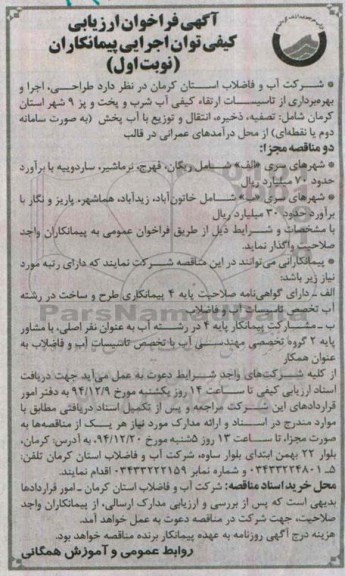 آگهی فراخوان ارزیابی
کیفی توان اجرایی پیمانکاران
(نوبت اول)
شرکت آب و فاضلاب استان کرمان در نظر دارد طراحی، اجرا و
بهره‌برداری از تاسیسات ارتقاء کیفی آب شرب و پخت و پز ۹ شهر استان
کرمان شامل: تصفیه، ذخیره، انتقال و توزیع با آب پخش (به صورت سامانه
دوم یا نقطه‌ای) از محل درآمدهای عمرانی در قالب
دو مناقصه مجزا:
* شهرهای سری «الف» شامل ریگان، فهرج، نرماشیر، ساردوییه با برآورد
حدود ۷۰ میلیارد ریال
* شهرهای سری «ب» شامل خاتون‌آباد، زیدآباد، هماشهر، پاریز و نگار با
برآورد حدود ۳۰ میلیارد ریال
با مشخصات و شرایط ذیل از طریق فراخوان عمومی به پیمانکاران واجد
صلاحیت واگذار نماید.
* پیمانکارانی می‌توانند در این مناقصه شرکت نمایند که دارای رتبه مورد
نیاز زیر باشد:
الف ـ دارای گواهی‌نامه صلاحیت پایه ۴ پیمانکاری طرح و ساخت در رشته
آب تخصص تاسیسات آب و فاضلاب
ب ـ مشارکت پیمانکار پایه ۴ در رشته آب به عنوان نفر اصلی، با مشاور
پایه ۲ گروه تخصصی مهندسی آب با تخصص تاسیسات آب و فاضلاب به
عنوان همکار
از کلیه شرکت‌های واجد شرایط دعوت به عمل می‌آید جهت دریافت
اسناد ارزیابی کیفی تا ساعت ۱۴ روز یکشنبه مورخ ۹۴/۱۲/۹ به دفتر امور
قراردادهای این شرکت مراجعه و پس از تکمیل اسناد دریافتی مطابق با
موارد مندرج در اسناد و ارائه مدارک مورد نیاز هر یک از مناقصه‌ها به
صورت مجزا، تا ساعت ۱۳ روز ۵شنبه مورخ ۹۴/۱۲/۲۰، به آدرس: کرمان،
بلوار ۲۲ بهمن ابتدای بلوار ساوه، شرکت آب و فاضلاب استان کرمان تلفن:
۵ـ۰۳۴۳۳۲۲۴۸۰۱ و شماره نمابر ۰۳۴۳۳۲۲۲۱۵۹ اقدام نمایند.
محل خرید اسناد مناقصه: شرکت آب و فاضلاب استان کرمان ـ امور قراردادها
بدیهی است که پس از بررسی و ارزیابی مدارک ارسالی، از پیمانکاران واجد
صلاحیت، جهت شرکت در مناقصه دعوت به عمل خواهد آمد.
هزینه درج آگهی روزنامه به عهده پیمانکار برنده مناقصه خواهد بود.
روابط عمومی و آموزش همگانی
ParsNamadData